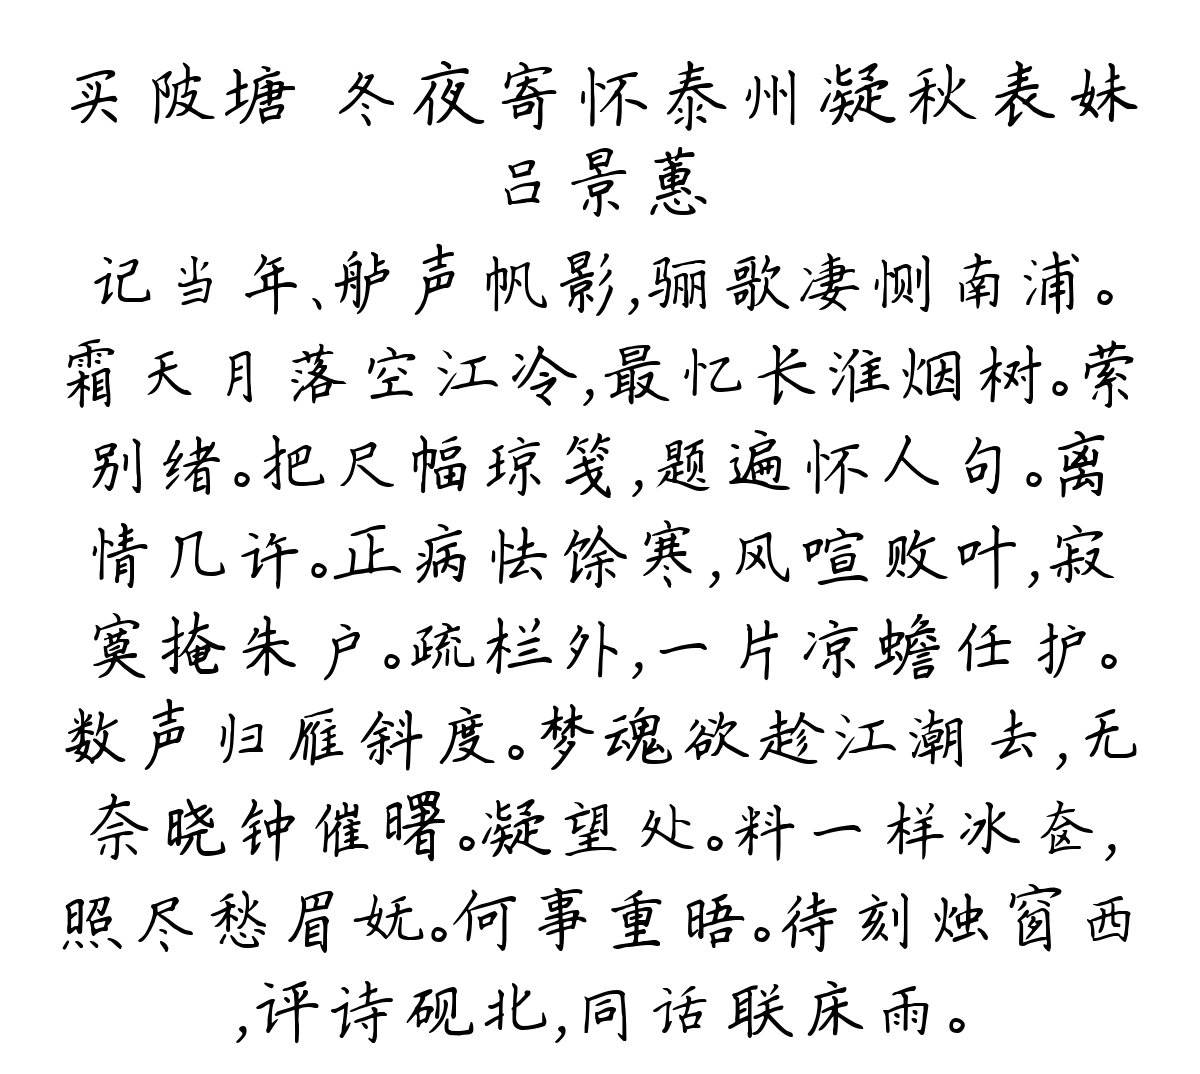 买陂塘 冬夜寄怀泰州凝秋表妹
吕景蕙
记当年、舻声帆影,骊歌凄恻南浦。
霜天月落空江冷,最忆长淮烟树。萦
别绪。把尺幅琼笺,题遍怀人句。离
情几许。正病怯馀寒,风喧败叶,寂
寞掩朱户。疏栏外,一片凉蟾任护。
数声归雁斜度。梦魂欲趁江潮去,无
奈晓钟催曙。凝望处。料一样冰奁,
照尽愁眉妩。何事重晤。待刻烛窗西
,评诗砚北,同话联床雨。